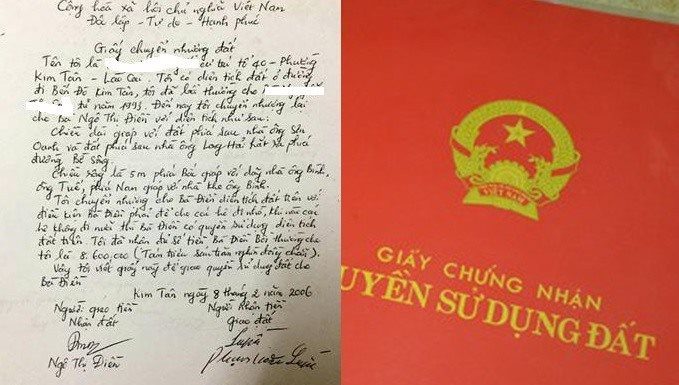 Cộng hòa xã hội chủ nghĩa Việt Nam
Độc lập - Tự do - Hạnh phúc
Giấy chuyển nhượng đất
Tên tôi là cư trú tổ 40 - Phường
Kim Tân - Lào Cai. Tôi có diện tích đất ở đường
đi Bến Đá Kim Tân, tôi đã bồi thường cho
từ năm 1993. Đến nay tôi chuyển nhượng lại
cho bà Ngô Thị Điền với diện tích như sau.
Chiều dài giáp với đất phía sau nhà ông Sơn
Oanh và đất phía sau nhà ông Long Hải kất ra phía
đường Bờ sông.
Chiều rộng là 5m phía Bắc giáp với dãy nhà ông Bình,
ông Tuế, phía Nam giáp với nhà kho ông Bình.
Tôi chuyển nhượng cho Bà Điền diện tích đất trên với
điều kiện Bà Điền phải để cho các hộ đi nhờ, khi nào các
hộ không đi nữa thì Bà Điền có quyền sử dụng diện tích
đất trên. Tôi đã nhận đủ số tiền Bà Điền Bồi thường cho
tôi là 8.600,000 (Tám triệu sáu trăm nghìn đồng chẵn).
Vậy tôi viết giấy này để giao quyền sử dụng đất cho
Bà Điền
Kim Tân ngày 8 tháng 2 năm 2006
Người giao tiền Người Nhận tiền
Nhận đất giao đất
Ngô Thị Điền
VIỆT NAM
GIẤY CHỨNG NHẬN
UYỀN SỬ DỤNG ĐẤT